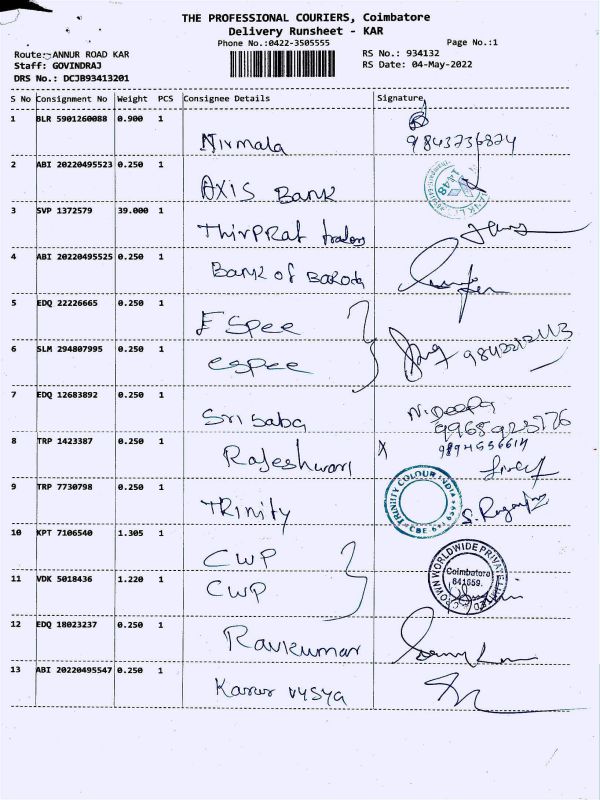 THE PROFESSIONAL COURIERS, Coimbatore
Delivery Runsheet - KAR
Phone No.:0422-3505555
Page No.:1
Route: ANNUR ROAD KAR
RS No.: 934132
Staff: GOVINDRAJ
RS Date: 04-May-2022
DRS No.: DCJB93413201
S No Consignment No Weight PCS Consignee Details Signature
1 BLR 5901260088 0.900 1
Nirmala 9843736824
2 ABI 20220495523 0.250 1
AXIS Bank
3 SVP 1372579 39.000 1
ThirPRat
4 ABI 20220495525 0.250 1
Bank of Baroda
5 EDQ 22226665 0.250 1
ESpee
6 SLM 294807995 0.250 1
espee
7 EDQ 12683892 0.250 1
Sri Saba N. Deepa
8 TRP 1423387 0.250 1
Rajeshwari X
9 TRP 7730798 0.250 1
Trinity
TRINITY COLOUR INDIA
10 KPT 7106540 1.305 1
CWP
CROWN WORLDWIDE PRIVATE LIMITED
Coimbatore
641659.
11 VDK 5018436 1.220 1
CWP
12 EDQ 18023237 0.250 1
Ravikumar
13 ABI 20220495547 0.250 1
Karur vysya